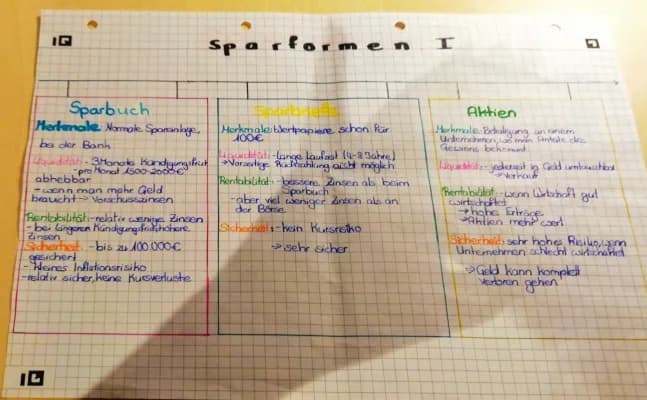 Sparformen I
Sparbuch
Merkmale: Normale Sparanlage,
bei der Bank
Liquidität: -3 Monate Kündigungsfrist
- pro Monat 1500-2000€
abhebbar
- wenn man mehr Geld
braucht → Vorschusszinsen
Rentabilität: -relativ wenige Zinsen
- bei längeren Kündigungsfristen höhere
Zinsen
Sicherheit - bis zu 100.000€
gesichert
- kleines Inflationsrisiko
- relativ sicher, keine Kursverluste
Sparbriefe
Merkmale: Wertpapiere schon für
100€
Liquidität: -Lange Laufzeit (4-8 Jahre)
→ Vorzeitige Rückzahlung nicht möglich
Rentabilität: - bessere Zinsen als beim
Sparbuch
- aber viel weniger Zinsen als an
der Börse
Sicherheit: - kein Kursrisiko
→ sehr sicher
Aktien
Merkmale: Beteiligung an einem
Unternehmen, wo man Anteile des
Gewinns bekommt
Liquidität: - jederzeit in Geld umtauschbar
→ Verkauf
Rentabilität: - wenn Wirtschaft gut
wirtschaftet
→ hohe Erträge
→ Aktien mehr wert
Sicherheit: sehr hohes Risiko, wenn
Unternehmen schlecht wirtschaftet
→ Geld kann komplett
verloren gehen